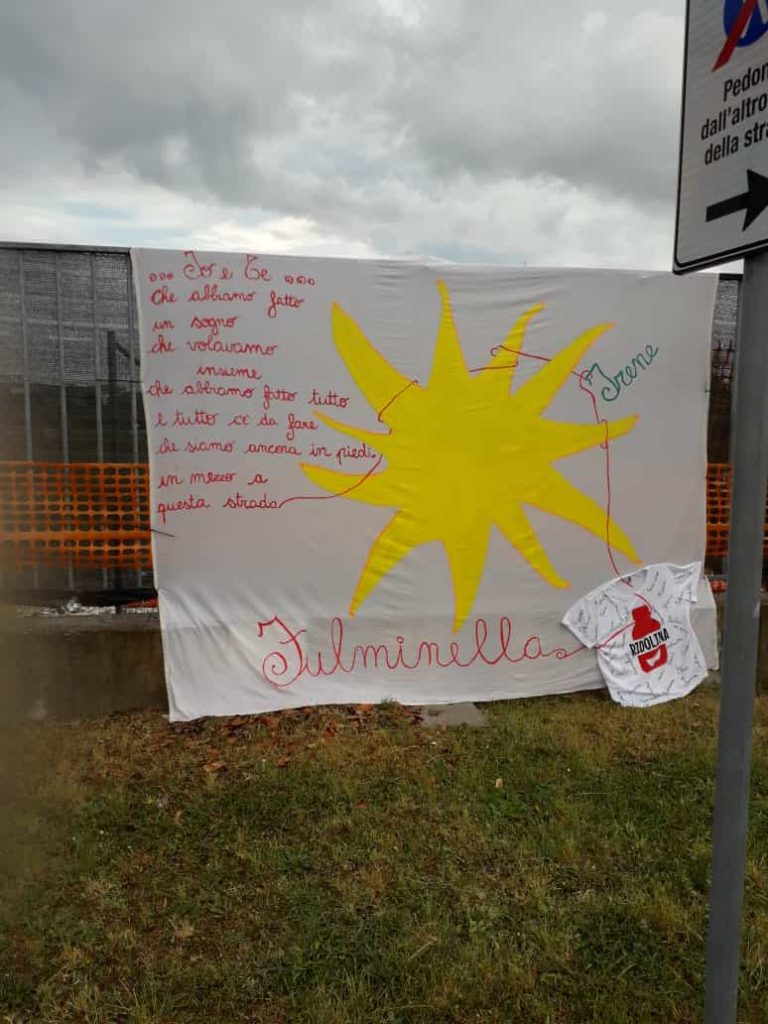 ... Io e Te ...
che abbiamo fatto
un sogno
che volavamo
insieme
che abbiamo fatto tutto
e tutto c'è da fare
che siamo ancora in piedi
in mezzo a
questa strada
Irene
Fulminella
RIDOLINA
Pedon
dall'altro
della stra